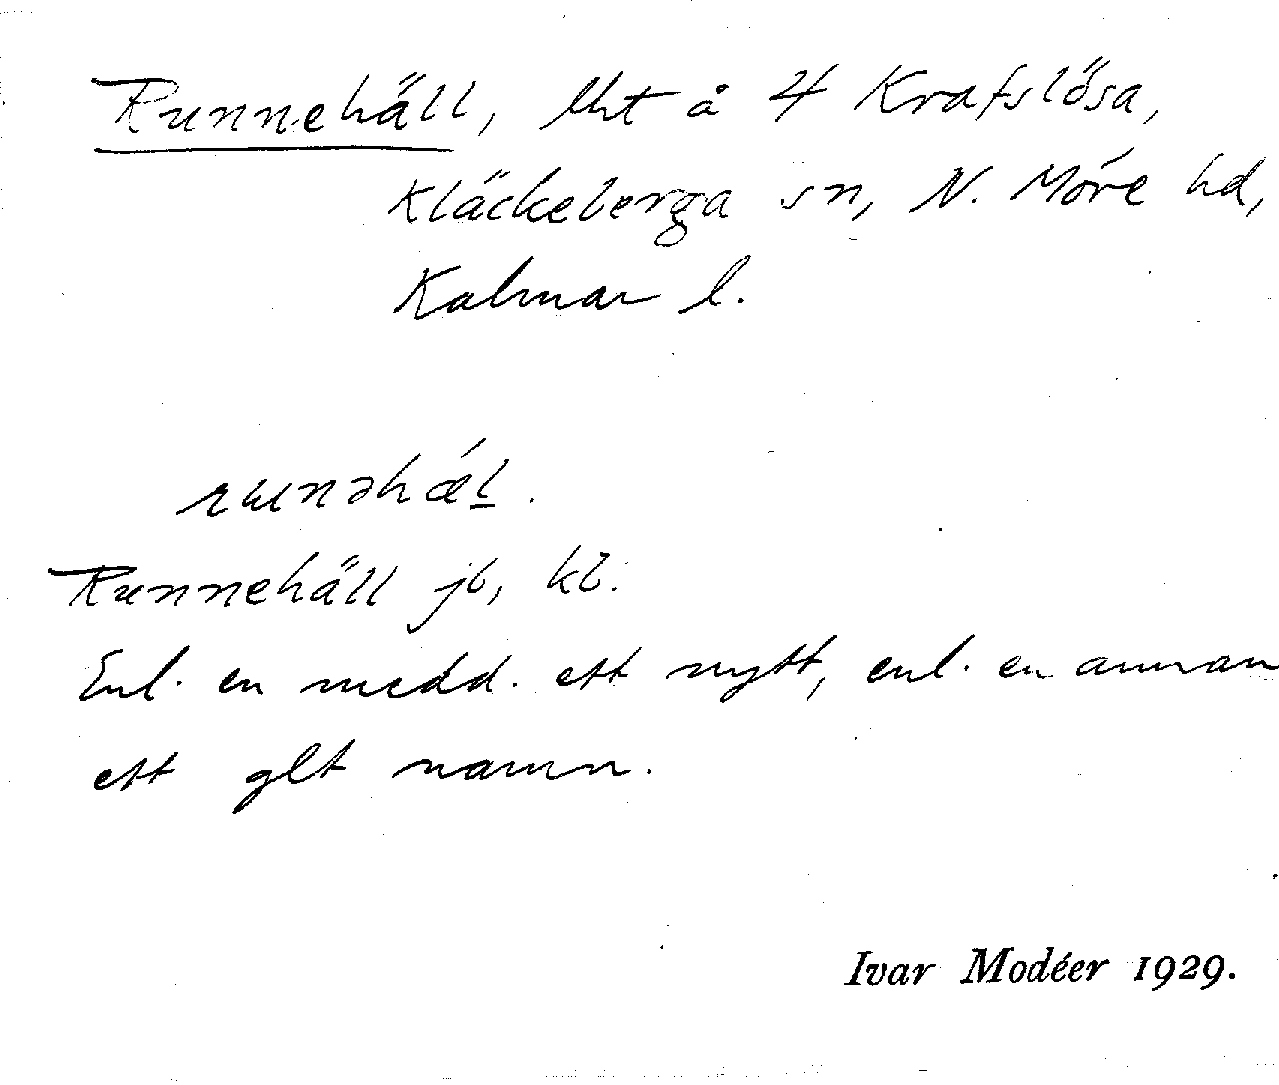 Runnehäll, lht å 4 Krafslösa,
Kläckeberga sn, N. Möre hd,
Kalmar l.
runəhǽl̲.
Runnehäll jb, kb.
Enl. en medd. ett nytt, enl. en annan
ett glt namn.
Ivar Modéer 1929.